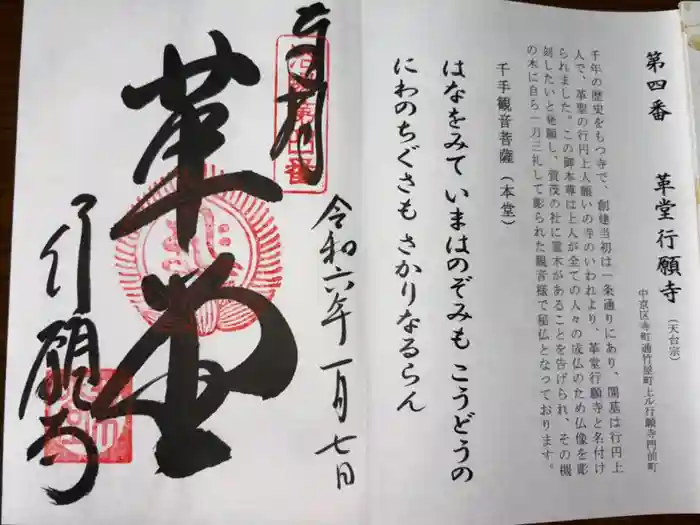 第四番 革堂行願寺（天台宗）
中京区寺町通竹屋町上ル行願寺門前町
千年の歴史をもつ寺で、創建当初は一条通りにあり、開基は行円上
人で、革聖の行円上人願いの寺のいわれより、革堂行願寺と名付け
られました。この御本尊は上人が全ての人々の成仏のため仏像を彫
刻したいと発願し、賀茂の社に霊木があることを告げられ、その槻
の木に自ら一刀三礼して彫られた観音様で秘仏となっております。
千手観音菩薩（本堂）
はなをみて いまはのぞみも こうどうの
にわのちぐさも さかりなるらん
令和六年一月七日
奉拝
革堂
行願寺